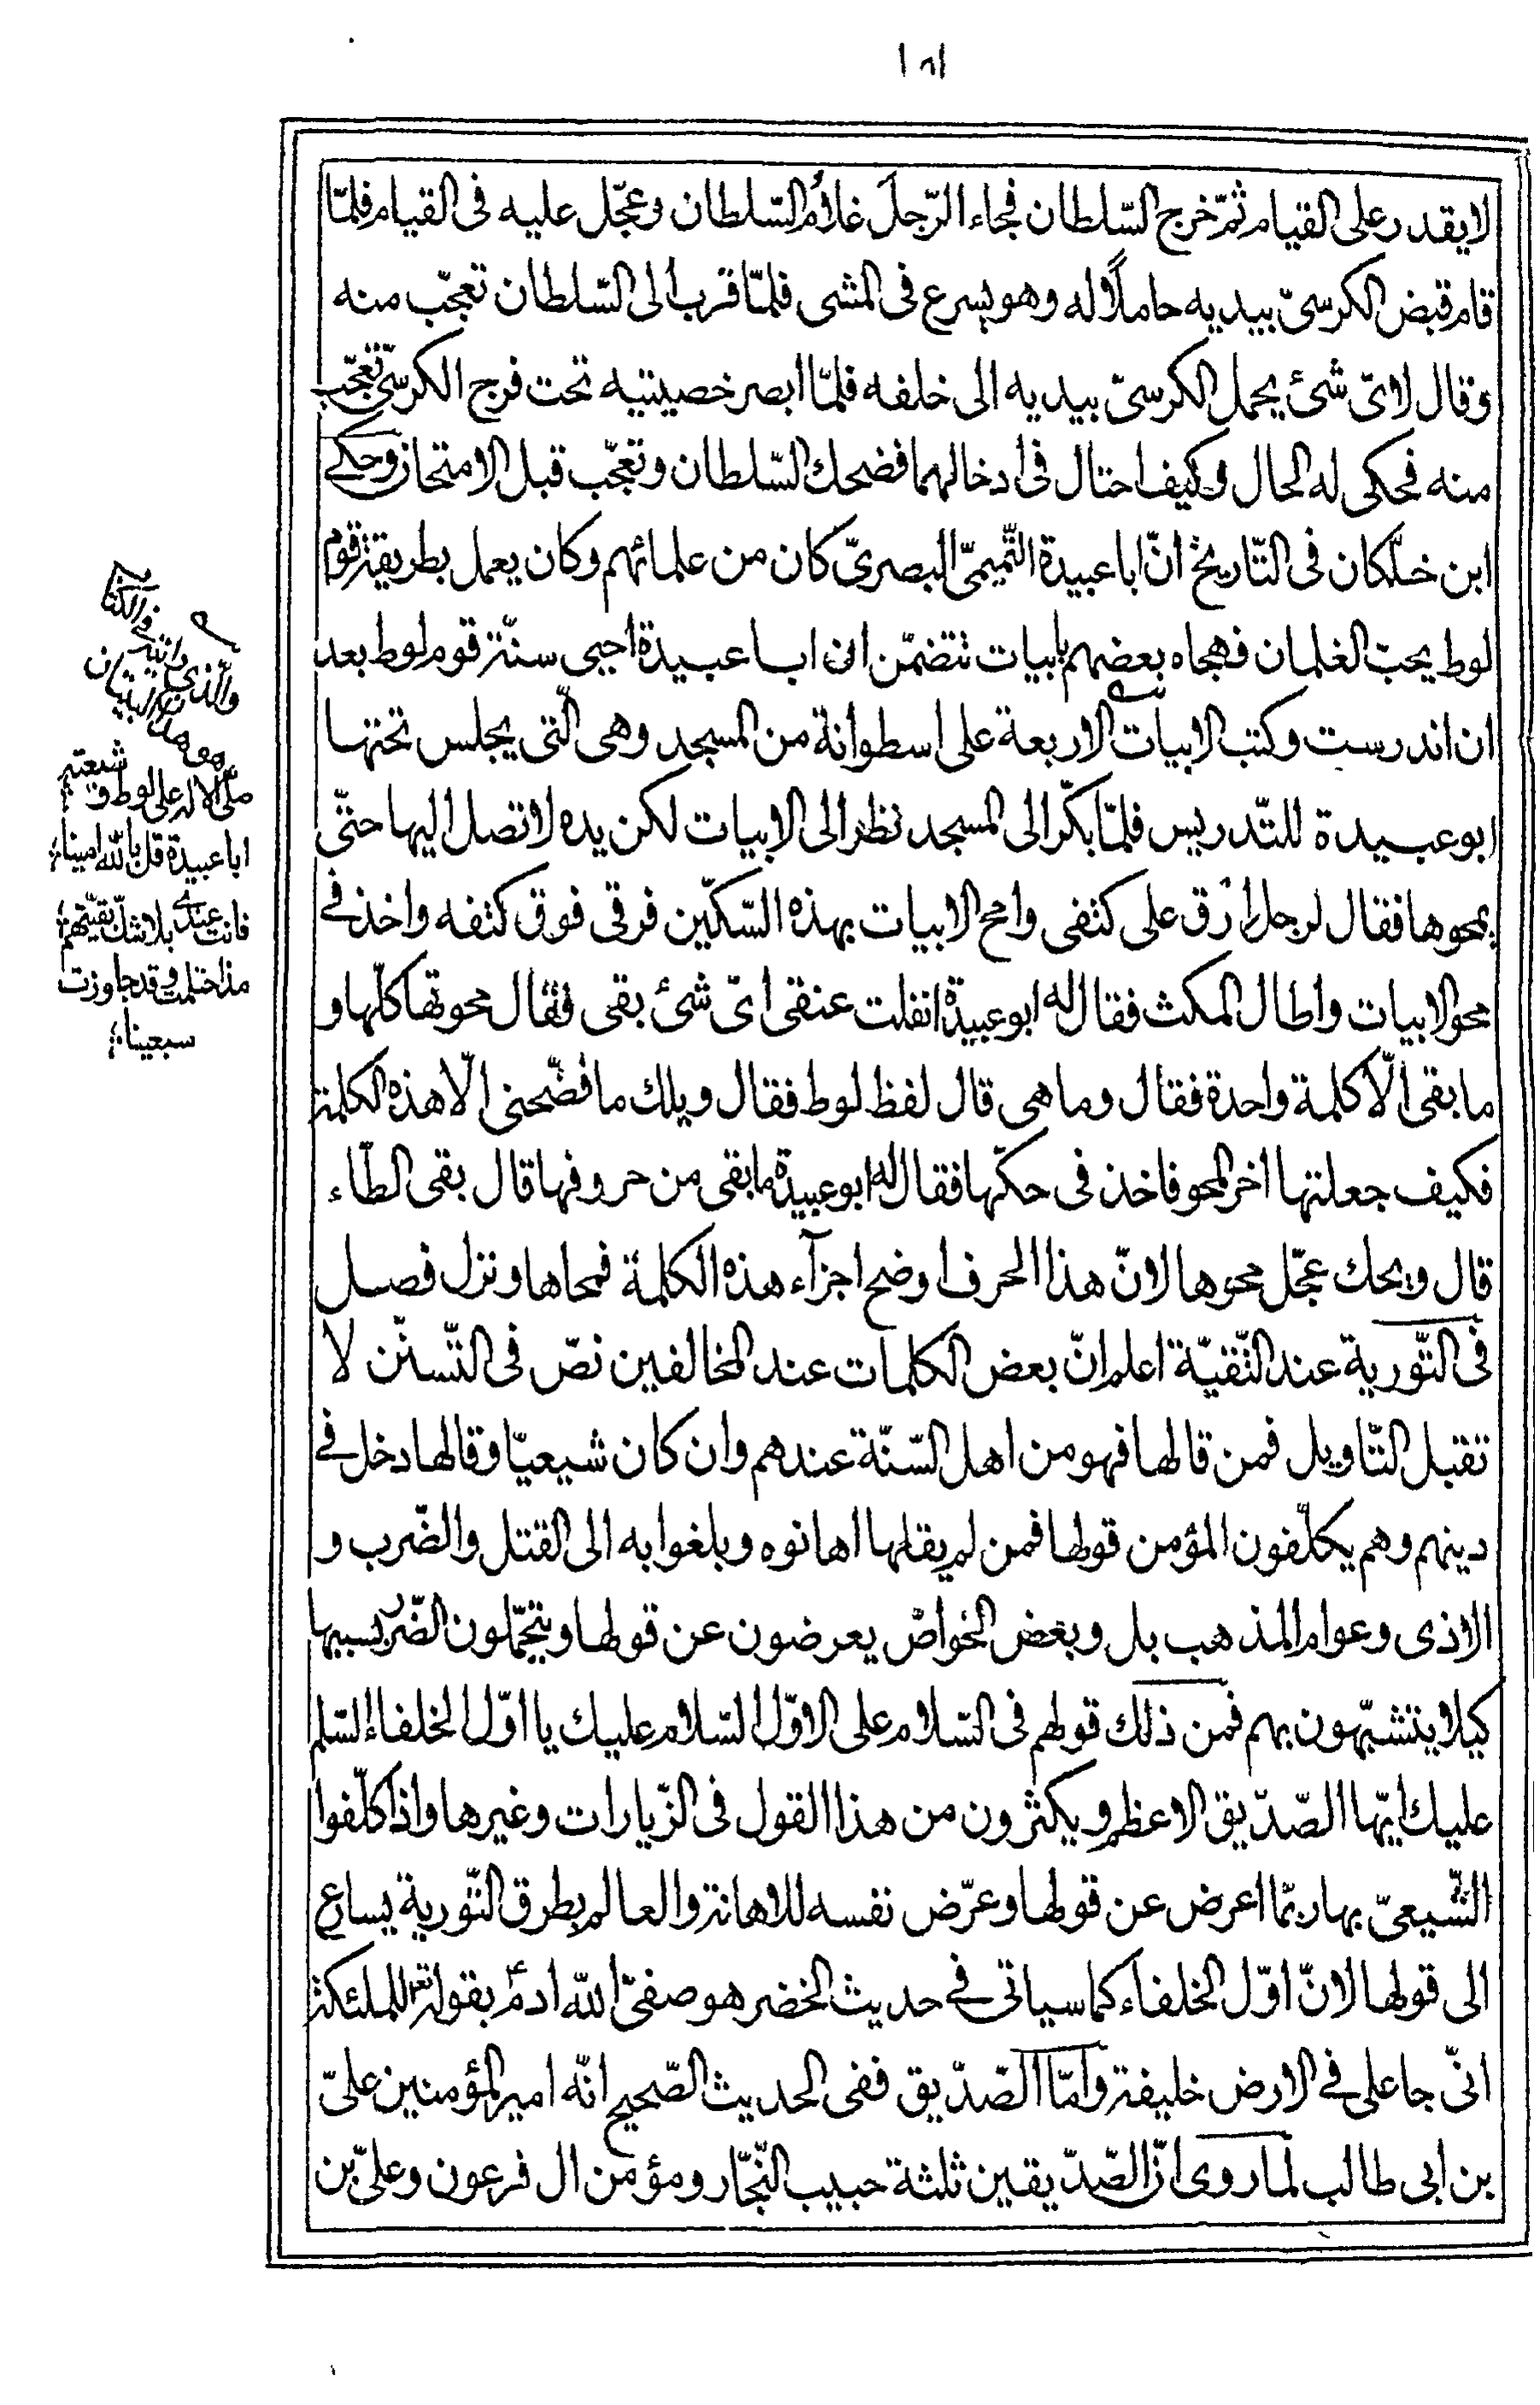 ١٨١
لا يقدر على القيام ثمّ خرج السّلطان فجاء الرّجل غلام السّلطان وعجّل عليه فى القيام فلمّا
قام قبض الكرسىّ بيديه حاملًا له وهو يسرع فى المشى فلمّا قرب الى السّلطان تعجّب منه
وقال لاىّ شئ يحمل الكرسىّ بيديه الى خلفه فلمّا ابصر خصيتيه تحت فرج الكرسىّ تعجّب
منه فحكى له الحال وكيف احتال فى ادخالهما فضحك السّلطان وتعجّب قبل الامتحان وحكى
ابن خلّكان فى التّاريخ انّ ابا عبيدة التّميمىّ البصرىّ كان من علمائهم وكان يعمل بطريقة قوم
لوط يحبّ الغلمان فهجاه بعضهم بابيات تتضمّن ان ابا عبيدة احيى سنّة قوم لوط بعد
ان اندرست وكتب الابيات الاربعة على اسطوانة من المسجد وهى الّتى يجلس تحتها
ابو عبيدة للتّدريس فلمّا بكّر الى المسجد نظر الى الابيات لكن يده لا تصل اليها حتّى
يمحوها فقال لرجل ارق على كتفى وامح الابيات بهذه السّكّين فرقى فوق كتفه واخذ فى
محو الابيات واطال المكث فقال له ابو عبيدة انفلت عنقى اىّ شئ بقى فقال محوتها كلّها و
ما بقى الّا كلمة واحدة فقال وما هى قال لفظ لوط فقال ويلك ما فضّحنى الّا هذه الكلمة
فكيف جعلتها اخر المحو فاخذ فى حكّها فقال له ابو عبيدة ما بقى من حروفها قال بقى الطّاء
قال ويحك عجّل محوها لانّ هذا الحرف اوضح اجزآء هذه الكلمة فمحاها ونزل فصل
فى التّورية عند التّقيّة اعلم انّ بعض الكلمات عند المخالفين نصّ فى التّسنّن لا
تقبل التّاويل فمن قالها فهو من اهل السّنّة عندهم وان كان شيعيّا وقالها دخل فى
دينهم وهم يكلّفون المؤمن قولها فمن لم يقلها اهانوه وبلغوا به الى القتل والضّرب و
الاذى وعوام المذهب بل وبعض الخواصّ يعرضون عن قولها ويتحمّلون الضّرر بسببها
كيلا يتشبّهون بهم فمن ذلك قولهم فى السّلام على الاوّل السّلام عليك يا اوّل الخلفاء السّلم
عليك ايّها الصّدّيق الاعظم ويكثرون من هذا القول فى الزّيارات وغيرها واذا كلّفوا
الشّيعىّ بها ربّما اعرض عن قولها وعرّض نفسه للاهانة والعالم بطرق التّورية يسارع
الى قولها لانّ اوّل الخلفاء كما سياتى فى حديث الخضر هو صفىّ اللّه ادم ع بقوله تع للملئكة
انّى جاعل فى الارض خليفة وامّا الصّدّيق ففى الحديث الصّحيح انّه امير المؤمنين علىّ
بن ابى طالب لما روى انّ الصّدّيقين ثلثة حبيب النّجّار ومؤمن ال فرعون وعلىّ بن
والّذى رايته فى الكتاب
صلّى الاله على لوط وشيعته
ابا عبيدة قل باللّه امينا
فانت عندى بلا شكّ بقيّتهم
مذ احتلمت وقد جاوزت
سبعينا